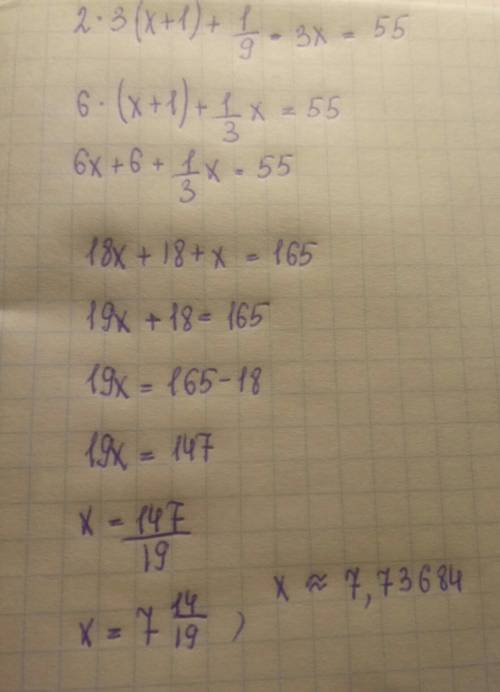 2·3(x+1)+1/9·3x=55
6·(x+1)+1/3x=55
6x+6+1/3x=55
18x+18+x=165
19x+18=165
19x=165-18
19x=147
x=147/19
x=7 14/19, x≈7,73684